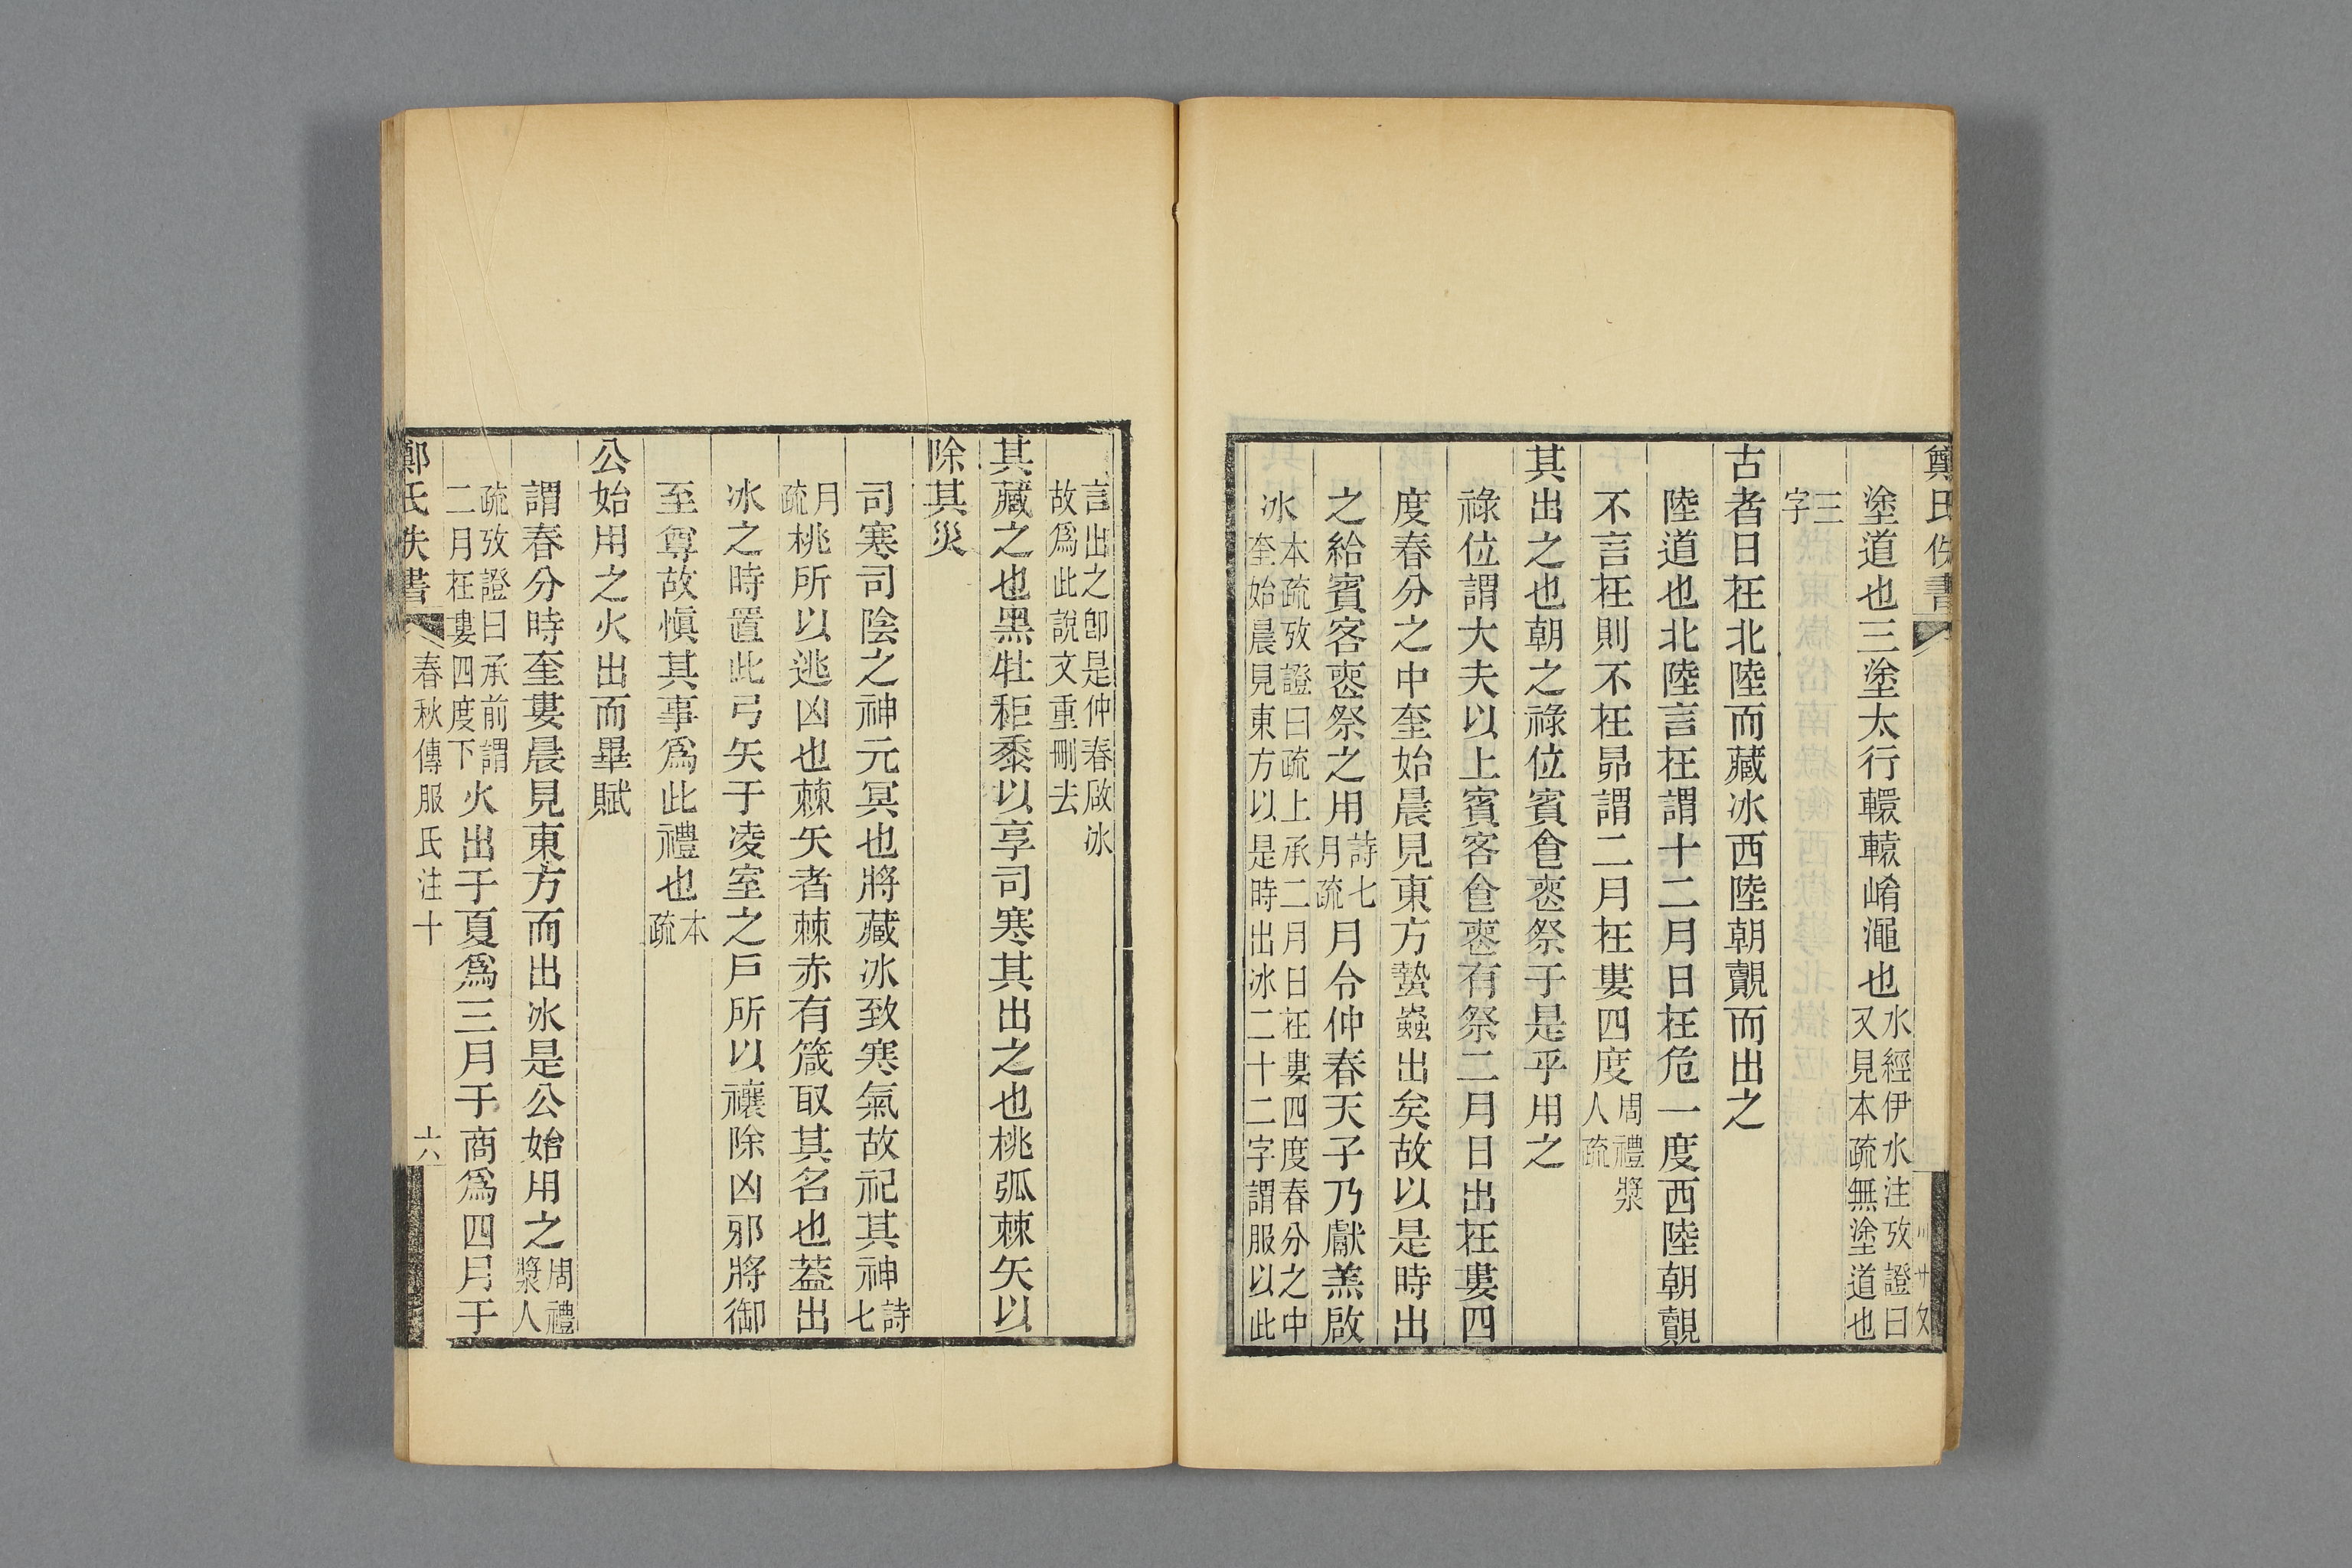 鄭氏佚書
塗道也三塗太行轘轅崤澠也水經伊水注攷證曰
又見本疏無塗道也
三
字
古者日在北陸而藏冰西陸朝覿而出之
陸道也北陸言在謂十二月日在危一度西陸朝覿
不言在則不在昴謂二月在婁四度周禮漿
人疏
其出之也朝之祿位賓食喪祭于是乎用之
祿位謂大夫以上賓客食喪有祭二月日出在婁四
度春分之中奎始晨見東方蟄蟲出矣故以是時出
之給賓客喪祭之用詩七
月疏月令仲春天子乃獻羔啟
冰本疏攷證曰疏上承二月日在婁四度春分之中
奎始晨見東方以是時出冰二十二字謂服以此
言出之卽是仲春啟冰
故爲此說文重刪去
其藏之也黑牡秬黍以享司寒其出之也桃弧棘矢以
除其災
司寒司陰之神元冥也將藏冰致寒氣故祀其神詩
七
月
疏桃所以逃凶也棘矢者棘赤有箴取其名也蓋出
冰之時置此弓矢于凌室之戶所以禳除凶邪將御
至尊故愼其事爲此禮也本
疏
公始用之火出而畢賦
謂春分時奎婁晨見東方而出冰是公始用之周禮
漿人
疏攷證曰承前謂
二月在婁四度下火出于夏爲三月于商爲四月于
鄭氏佚書
春秋傳服氏注十
六